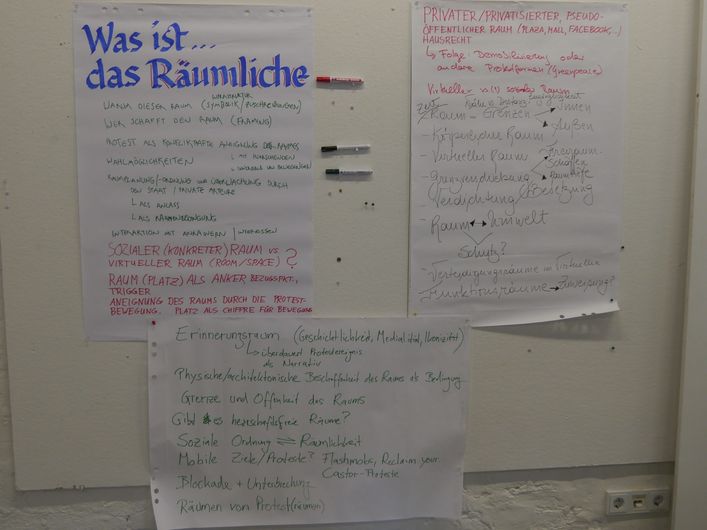 Was ist...
das Räumliche
WARUM DIESER RAUM (SYMBOLIK /
WER SCHAFFT DEN RAUM (FRAMING)
PROTEST ALS KONFLIKTHAFTE ANEIGNUNG DES RAUMES
WAHLMÖGLICHKEITEN
ORDNUNG UND ÜBERWACHUNG DURCH
DEN STAAT / PRIVATE AKTEURE
ALS ANLASS
ALS RAHMENBEDINGUNG
INTERAKTION MIT ANWOHNERN / INTERESSEN
SOZIALER (KONKRETER) RAUM VS
VIRTUELLER RAUM (ROOM/SPACE) ?
RAUM (PLATZ) ALS ANKER BEZUGSPKT.,
TRIGGER
ANEIGNUNG DES RAUMS DURCH DIE PROTEST-
BEWEGUNG. PLATZ ALS CHIFFRE FÜR BEWEGUNG
PRIVATER/PRIVATISIERTER, PSEUDO-
ÖFFENTLICHER RAUM (PLAZA, MALL, FACEBOOK,...)
HAUSRECHT
↳ Folge Demobilisierung oder
andere Protestformen (Greenpeace)
Virtueller vs. sozialer Raum
Raum - Grenzen → Innen
Außen
- Körperlicher Raum
- Virtueller Raum Freiraum
schaffen
- Grenzverschiebung
- Verdichtung Besetzung
- Raum ↔ Umwelt
Schutz?
- Verteidigungsräume im Virtuellen
- Funktionsräume → Zuweisung?
Erinnerungsraum (Geschichtlichkeit, Medialität, Ikonizität)
↳ überdauert Protestereignis
als Narrativ
Physische/architektonische Beschaffenheit des Raums als Bedingung
Grenze und Offenheit des Raums
Gibt es herrschaftsfreie Räume?
Soziale Ordnung ⇌ Räumlichkeit
Mobile Ziele/Proteste? Flashmobs, Reclaim your
Castor-Proteste
Blockade + Unterbrechung
Räumen von Protest(räumen)